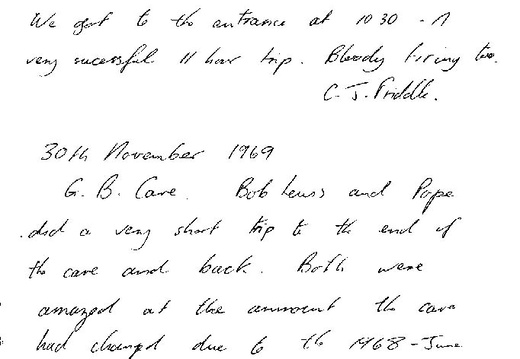 We got to the entrance at 1030 - A
very sucessful 11 hour trip. Bloody tiring too.
C. J. Priddle.
30th November 1969
G. B. Cave. Bob Lewis and Pope
did a very short trip to the end of
the cave and back. Both were
amazed at the ammount the cave
had changed due to th 1968 - June